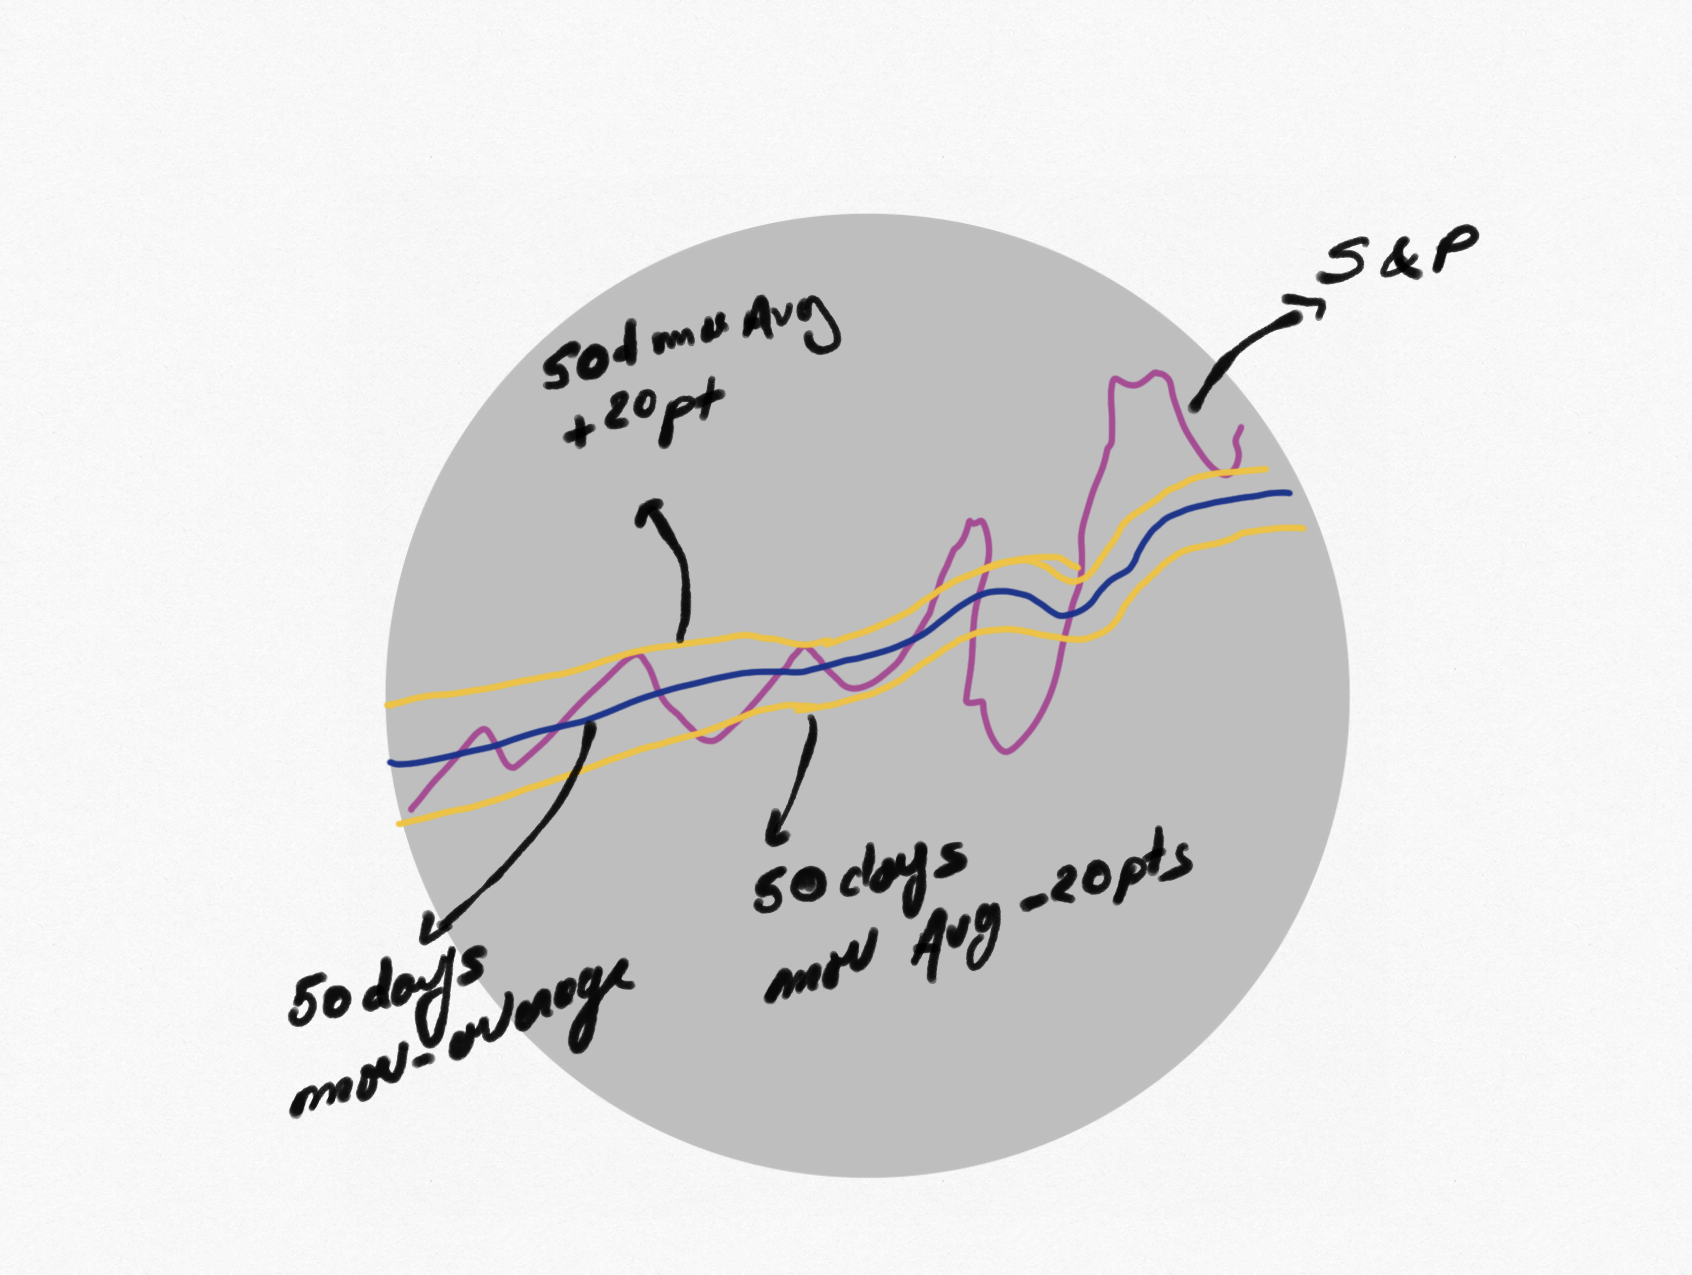 S & P
50d mov Avg
+20pt
50 days
mov Avg -20pts
50 days
mov-average